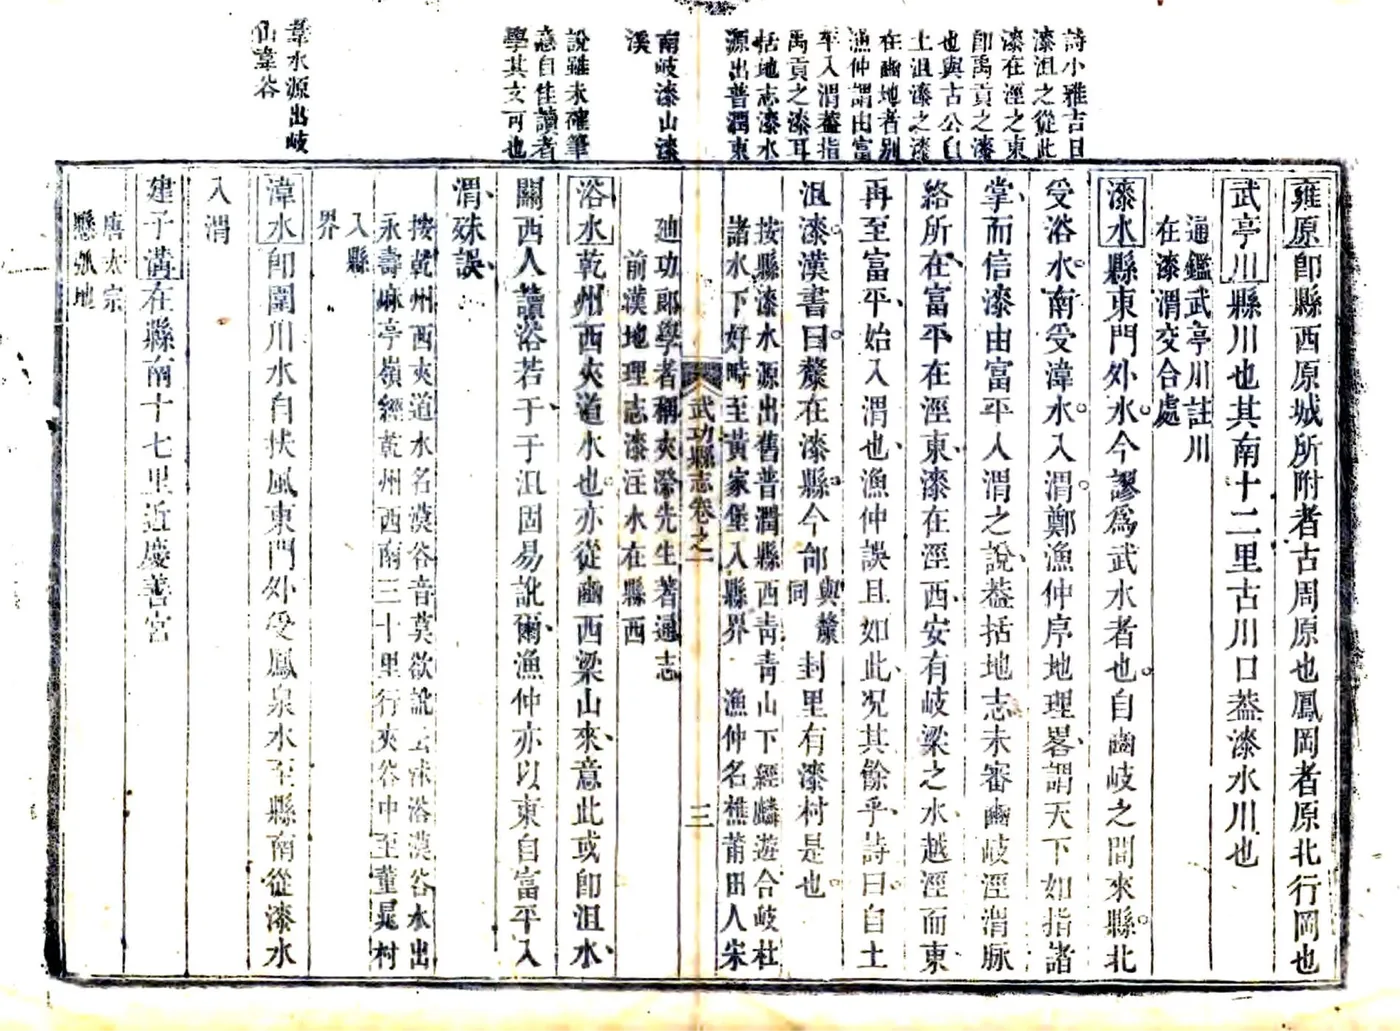 詩小雅吉日
漆沮之從此
漆在涇之東
卽禹貢之漆
也與古公自
土沮漆之漆
在豳地者别
漁仲謂由富
平入渭蓋指
禹貢之漆耳
括地志漆水
源出普潤東
南岐漆山漆
溪
說雖未確筆
意自佳讀者
學其文可也
韋水源出岐
山湋谷
雍原卽縣西原城所附者古周原也鳳岡者原北行岡也
武亭川縣川也其南十二里古川口葢漆水川也
通鑑武亭川註川
在漆渭交合處
漆水縣東門外水今謬爲武水者也自豳岐之間來縣北
受浴水南受湋水入渭鄭漁仲序地理畧謂天下如指諸
掌而信漆由富平人渭之說葢括地志未審豳岐涇渭脈
絡所在富平在涇東漆在涇西安有岐梁之水越涇而東
再至富平始入渭也漁仲誤且如此况其餘乎詩曰自土
沮漆漢書曰斄在漆縣今邰與斄同封里有漆村是也
按縣漆水源出舊普潤縣西靑靑山下經麟遊合岐杜
諸水下好畤至黃家堡入縣界 漁仲名樵莆田人宋
武功縣志卷之一
三
廸功郎學者稱夾漈先生著通志
前漢地理志漆注水在縣西
浴水乾州西夾道水也亦從豳西梁山來意此或卽沮水
關西人讀浴若于于沮固易訛爾漁仲亦以東自富平入
渭殊誤
按乾州西夾道水名漠谷音莫欲訛云沭浴漠谷水出
永壽麻亭嶺經乾州西南三十里行夾谷中至董晃村
入縣
界
湋水卽闈川水自扶風東門外受鳳泉水至縣南從漆水
入渭
建子溝在縣南十七里近慶善宮
唐太宗
懸弧地